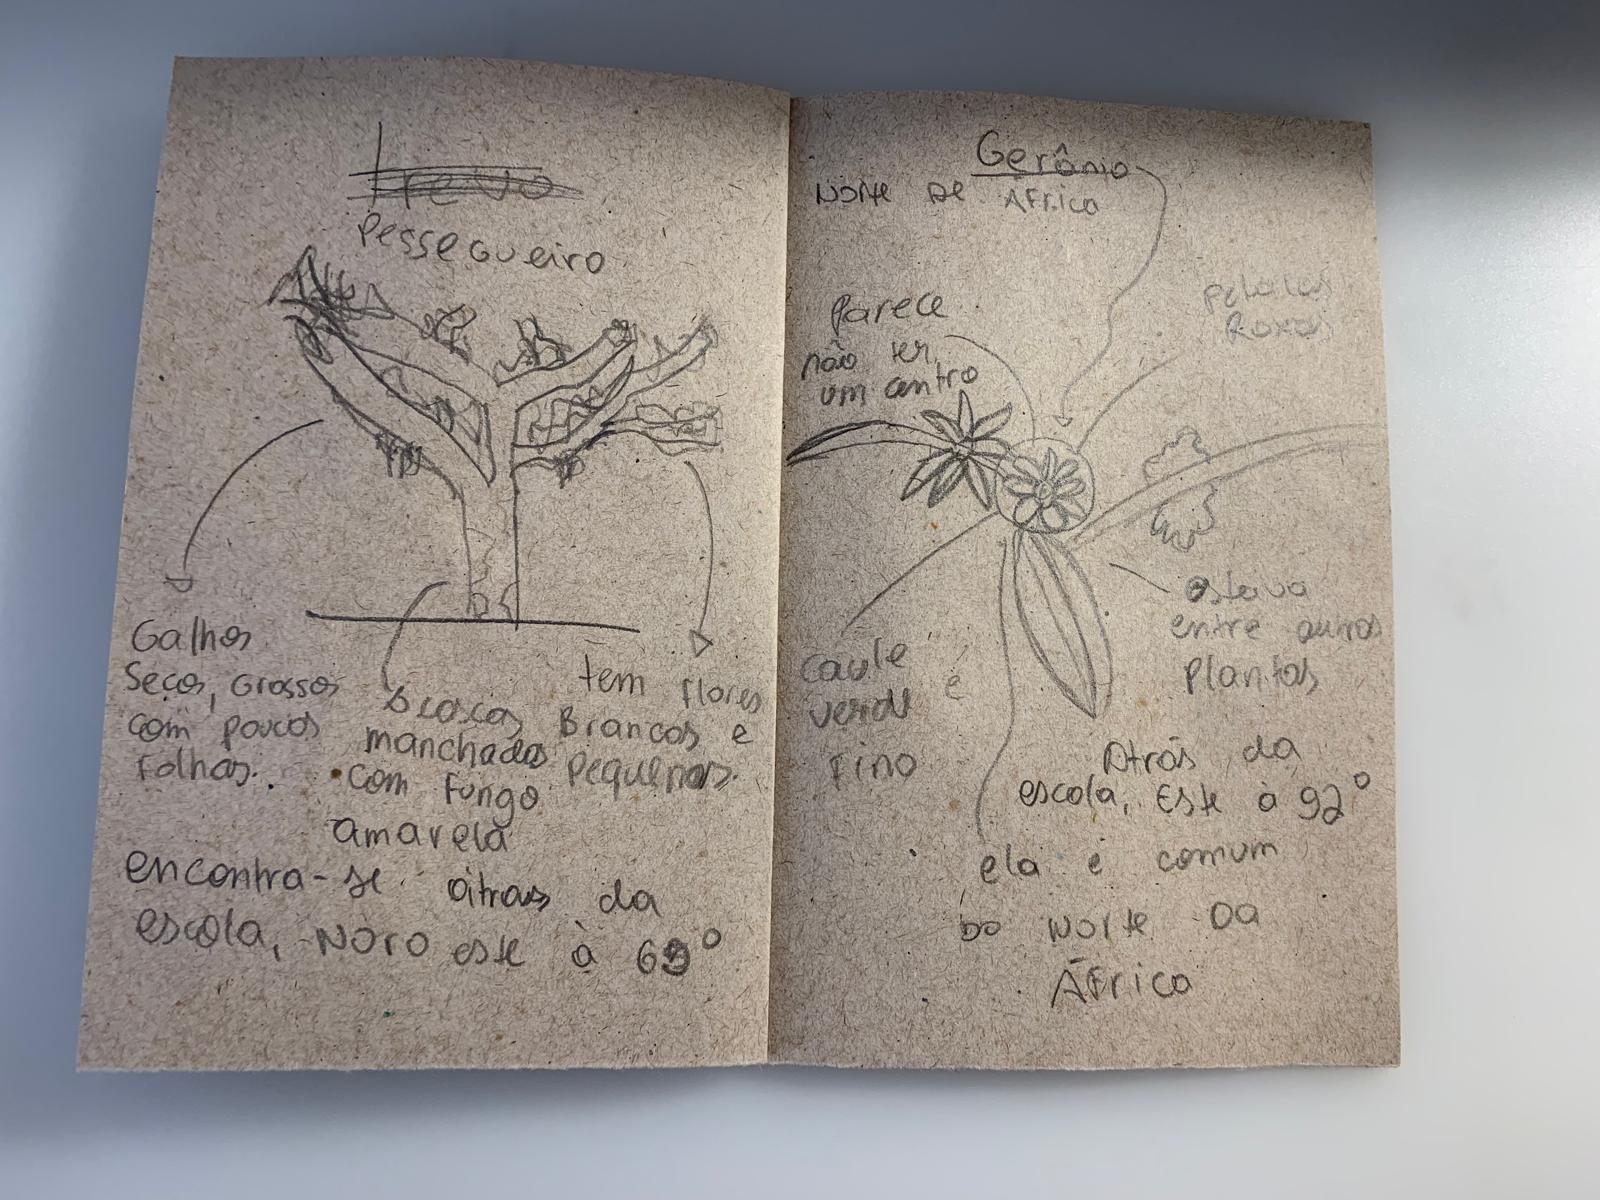 Trevo
Pessegueiro
Galhos
Secos, Grossos
com poucos
Folhas.
manchadas
com Fungo
amarela
tem flores
Brancas e
Pequenas.
encontra-se atras da
escola, Noroeste à 69°
Gerânio
Norte de África
Parece
não ter
um centro
Petalas
Roxas
estava
entre outras
Plantas
Caule
verde e
Fino
Atrás da
escola, Este à 92°
ela é comum
no Norte Da
África